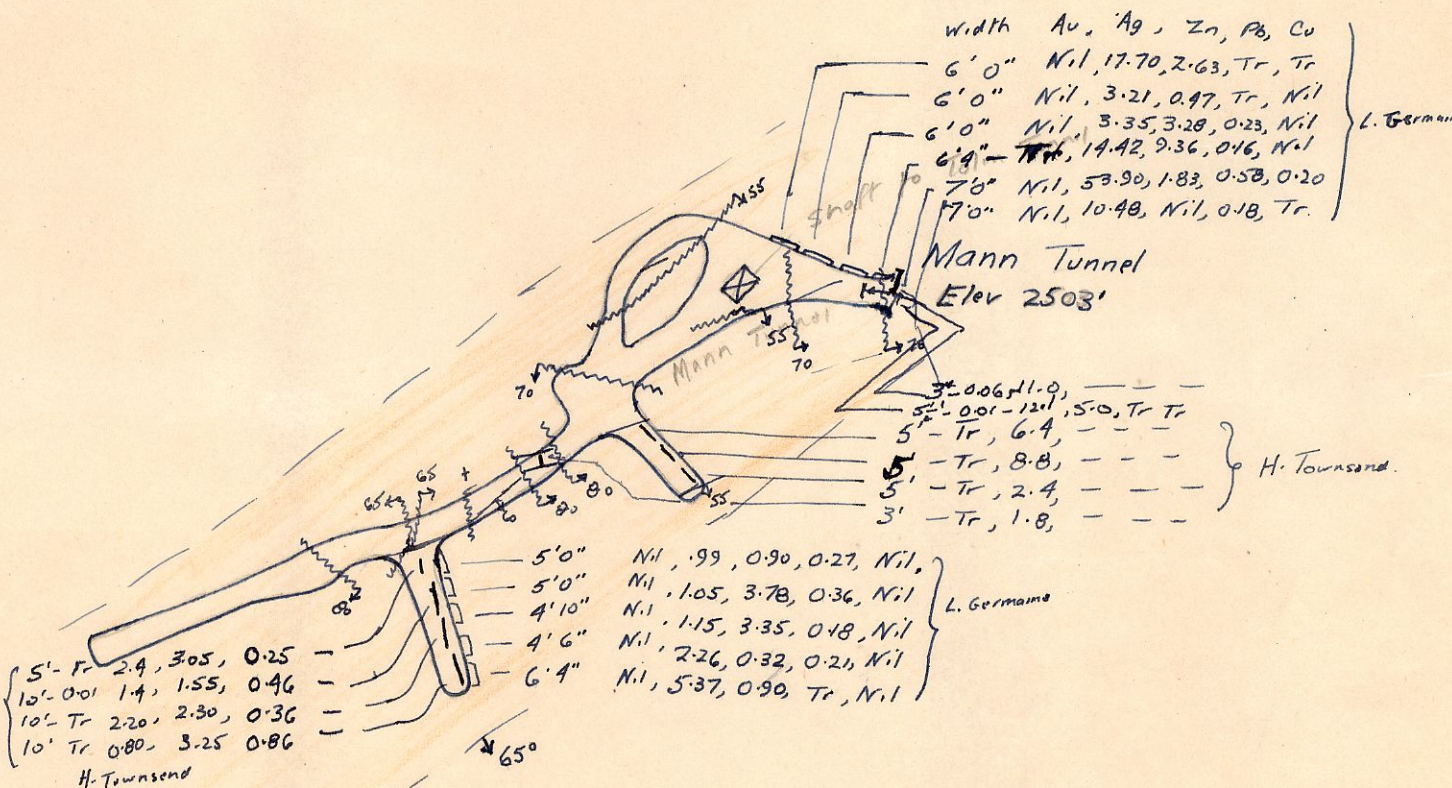 width Au, Ag, Zn, Pb, Cu
6'0" Nil, 17.70, 2.63, Tr, Tr
6'0" Nil, 3.21, 0.47, Tr, Nil
6'0" Nil, 3.35, 3.28, 0.23, Nil
6'4" — 14.42, 9.36, 0.16, Nil
7'0" Nil, 53.90, 1.83, 0.58, 0.20
7'0" Nil, 10.48, Nil, 0.18, Tr.
L. Germaine
Shaft to
55
Mann Tunnel
Elev 2503'
Mann Tunnel
55
70
70
70
3'- 0.06, 11.0, — — —
5'- 0.01 - 12.1, 5.0, Tr Tr
5' - Tr, 6.4, — — —
5' - Tr, 8.8, — — —
5' - Tr, 2.4, — — —
3' - Tr, 1.8, — — —
H. Townsend.
55
80
80
65
65
80
5'0" Nil, .99, 0.90, 0.27, Nil,
5'0" Nil, 1.05, 3.78, 0.36, Nil
4'10" Nil, 1.15, 3.35, 0.18, Nil
4'6" Nil, 2.26, 0.32, 0.21, Nil
6'4" Nil, 5.37, 0.90, Tr, Nil
L. Germaine
5'- Tr 2.4, 3.05, 0.25 —
10'- 0.01 1.4, 1.55, 0.46 —
10'- Tr 2.20, 2.30, 0.36 —
10' Tr 0.80, 3.25 0.86 —
H. Townsend
65°